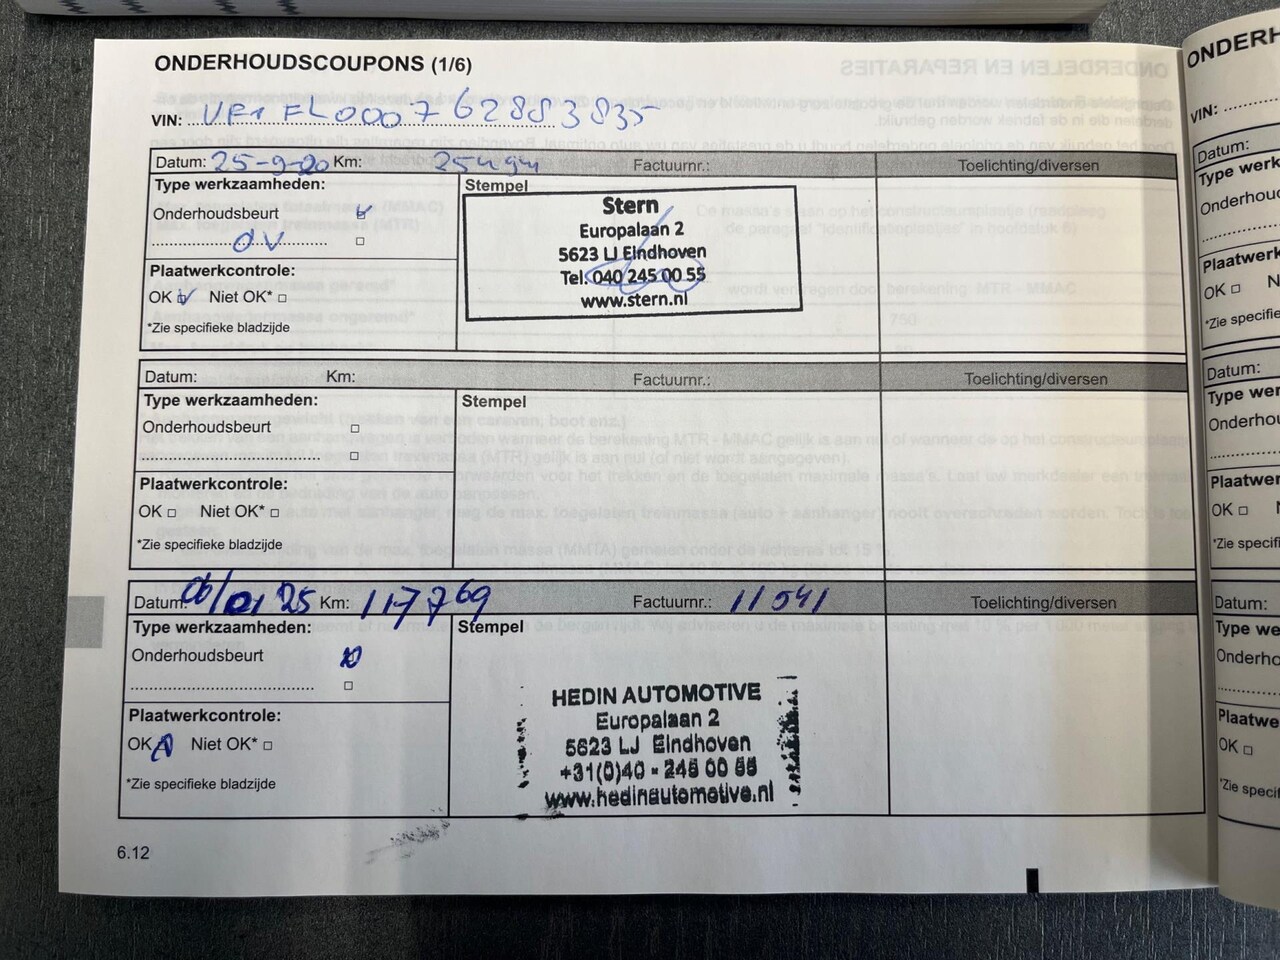 ONDERHOUDSCOUPONS (1/6)
VIN: VF1 FL000762883835
Datum: 25-9-20 Km: 25494 Factuurnr.: Toelichting/diversen
Type werkzaamheden: Stempel
Onderhoudsbeurt
OV
Plaatwerkcontrole:
OK Niet OK*
*Zie specifieke bladzijde
Stern
Europalaan 2
5623 LJ Eindhoven
Tel: 040 245 00 55
www.stern.nl
Datum: Km: Factuurnr.: Toelichting/diversen
Type werkzaamheden: Stempel
Onderhoudsbeurt
Plaatwerkcontrole:
OK Niet OK*
*Zie specifieke bladzijde
Datum: 06/01 25 Km: 117769 Factuurnr.: 11541 Toelichting/diversen
Type werkzaamheden: Stempel
Onderhoudsbeurt
Plaatwerkcontrole:
OK Niet OK*
*Zie specifieke bladzijde
HEDIN AUTOMOTIVE
Europalaan 2
5623 LJ Eindhoven
+31(0)40 - 245 00 55
www.hedinautomotive.nl
6.12
VIN:
Datum:
OK
Datum:
OK
Datum:
OK